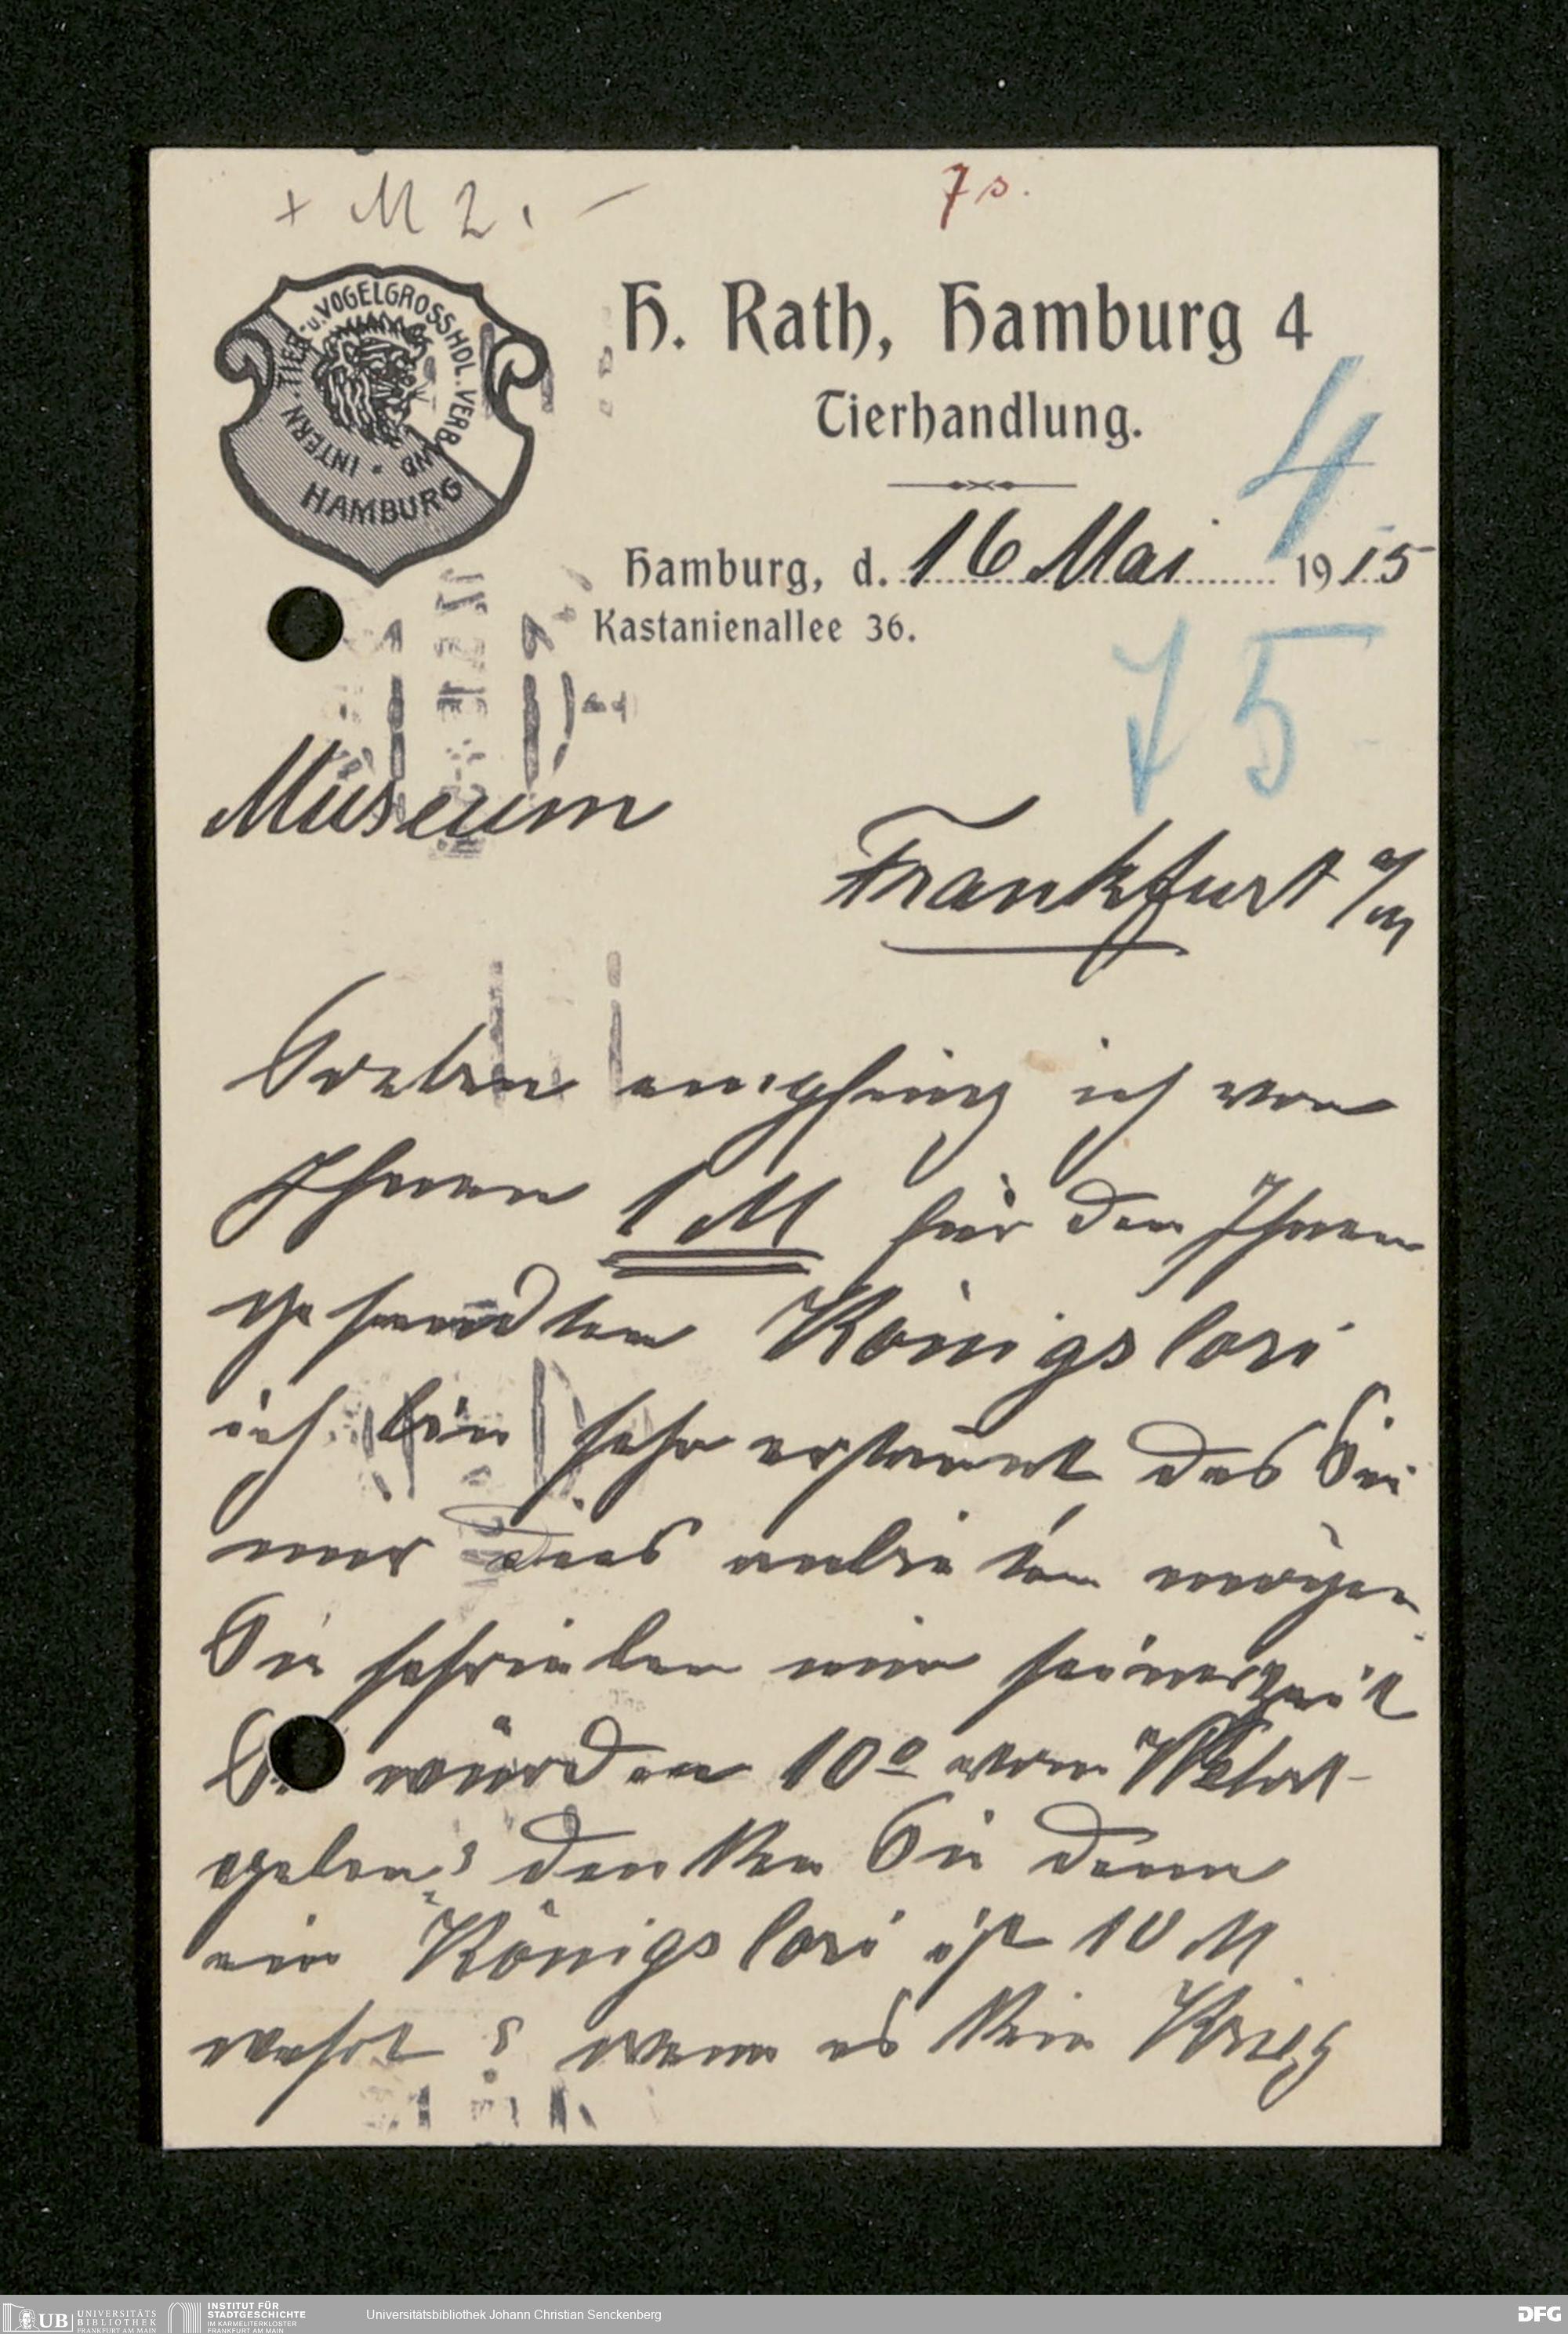 + M 2. –
7 s.
INTERN. TIER- u. VOGELGROSSHDL. VERBAND
HAMBURG
H. Rath, Hamburg 4
Tierhandlung.
4
Hamburg, d. 16 Mai 1915
Kastanienallee 36.
75
Museum
Frankfurt a/M
Soeben empfing ich von
Ihnen 1 M für den Ihnen
gesandten Königslori
ich bin sehr erstaunt das Sie
mir das anbieten mögen
Sie schrieben mir seinerzeit
würden 10% vom Wehrt
geben? denken Sie denn
ein Königslori ist 10 M
wehrt? wenn es kein Krieg
UB UNIVERSITÄTS BIBLIOTHEK FRANKFURT AM MAIN
INSTITUT FÜR STADTGESCHICHTE IM KARMELITERKLOSTER FRANKFURT AM MAIN
Universitätsbibliothek Johann Christian Senckenberg
DFG